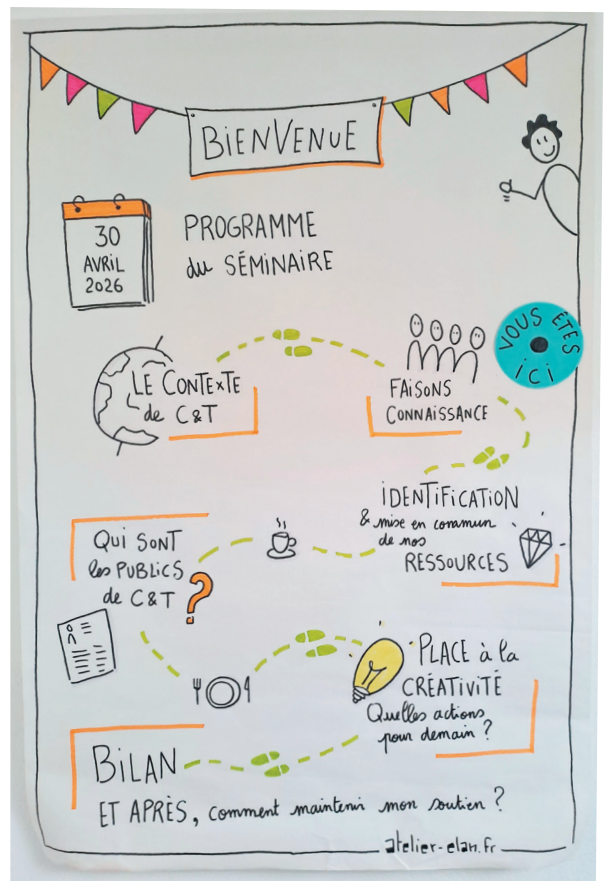 BIENVENUE
30
AVRIL
2026
PROGRAMME
du SÉMINAIRE
LE CONTEXTE
de C&T
FAISONS
CONNAISSANCE
VOUS ÊTES
ICI
IDENTIFICATION
& mise en commun
de nos
RESSOURCES
QUI SONT
les PUBLICS
de C&T
?
PLACE à la
CRÉATIVITÉ
Quelles actions
pour demain ?
BILAN
ET APRÈS, comment maintenir mon soutien ?
atelier-elan.fr